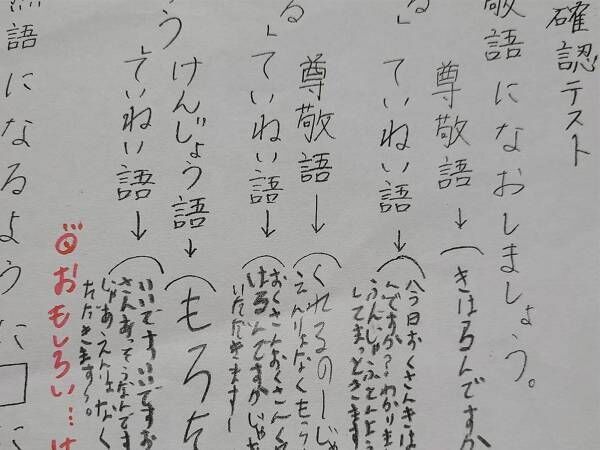 確認テスト
敬語になおしましょう。
尊敬語→(きはるんですか
る」ていねい語→(今日おくさんきは
んですか?わかりま
してまっときます
尊敬語→(くれるのーじゃ
えんりょなくもらう
る」ていねい語→(おくさんおくさんくれ
はるんですかじゃあ
いただきますー
う けんじょう語→(もろた
ていねい語→(いいですいいですお
さんあっそうなんです
じゃあえんりょなく
ただきます〜。
おもしろい…け
語になるように□に